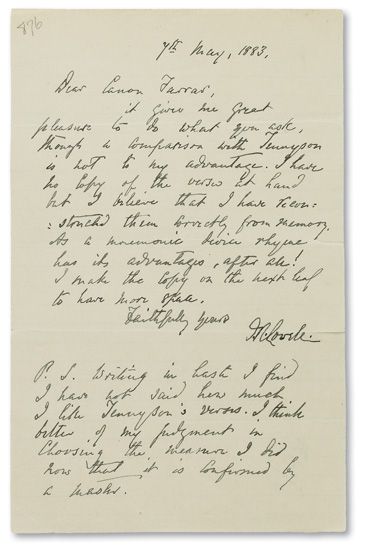 876
7th May, 1883.
Dear Canon Farrar,
it gives me great
pleasure to do what you ask,
though a comparison with Tennyson
is not to my advantage. I have
no copy of the verses at hand
but I believe that I have recon-
:structed them correctly from memory.
As a mnemonic device rhyme
has its advantages, after all!
I make the copy on the next leaf
to have more space.
Faithfully yours
JRLowell.
P. S. Writing in haste I find
I have not said how much
I like Tennyson's verses. I think
better of my judgment in
choosing the measure I did
now that it is confirmed by
a master.